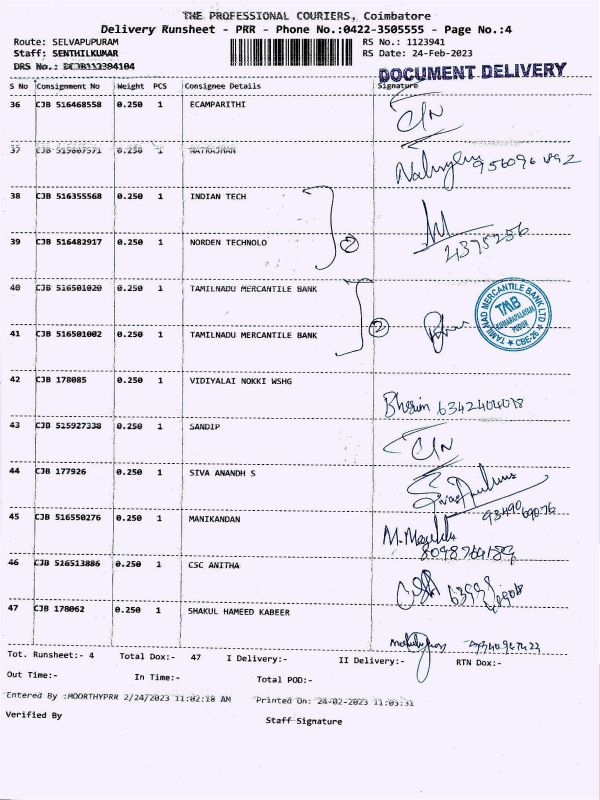 THE PROFESSIONAL COURIERS, Coimbatore
Delivery Runsheet - PRR - Phone No.:0422-3505555 - Page No.:4
Route: SELVAPUPURAM RS No.: 1123941
Staff: SENTHILKUMAR RS Date: 24-Feb-2023
DRS No.:
DOCUMENT DELIVERY
S No Consignment No Weight PCS Consignee Details Signature
36 CJB 516468558 0.250 1 ECAMPARITHI
37 CJB 515807571 0.250 1 NATRAJMAN
38 CJB 516355568 0.250 1 INDIAN TECH
39 CJB 516482917 0.250 1 NORDEN TECHNOLO 2
40 CJB 516501020 0.250 1 TAMILNADU MERCANTILE BANK
41 CJB 516501002 0.250 1 TAMILNADU MERCANTILE BANK 2
TAMILNAD MERCANTILE BANK LTD
TMB
CBE-26
42 CJB 178085 0.250 1 VIDIYALAI NOKKI WSHG
43 CJB 515927338 0.250 1 SANDIP
44 CJB 177926 0.250 1 SIVA ANANDH S
45 CJB 516550276 0.250 1 MANIKANDAN
46 CJB 516513886 0.250 1 CSC ANITHA
47 CJB 178062 0.250 1 SHAKUL HAMEED KABEER
Tot. Runsheet:- 4 Total Dox:- 47 I Delivery:- II Delivery:- RTN Dox:-
Out Time:- In Time:- Total POD:-
Entered By :MOORTHYPRR 2/24/2023 11:02:18 AM Printed On: 24-02-2023 11:03:31
Verified By Staff Signature